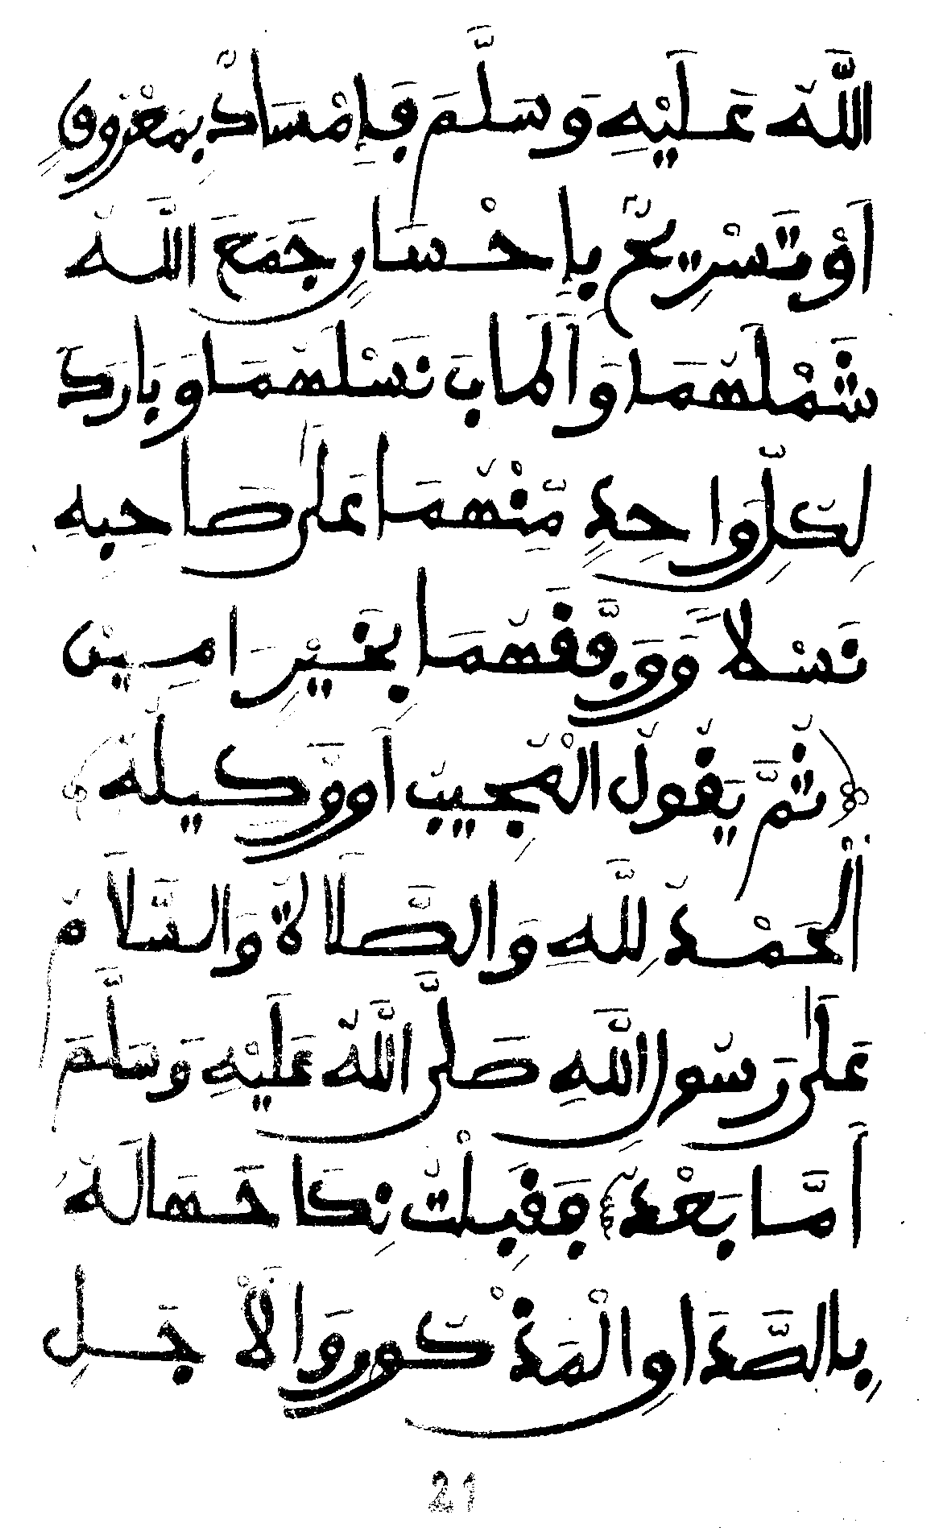 اللَّهُ عَلَيْهِ وَسَلَّمَ فَإِمْسَاكٌ بِمَعْرُوفٍ
أَوْ تَسْرِيحٌ بِإِحْسَانٍ جَمَعَ اللَّهُ
شَمْلَهُمَا وَأَطَابَ نَسْلَهُمَا وَبَارَكَ
لِكُلِّ وَاحِدٍ مِّنْهُمَا عَلَى صَاحِبِهِ
نَسْلًا وَوَفَّقَهُمَا بِخَيْرٍ امِين
ثُمَّ يَقُولُ الْمُجِيبُ أَوْ وَكِيلُهُ
الْحَمْدُ لِلَّهِ وَالصَّلَاةُ وَالسَّلَامُ
عَلَى رَسُولِ اللَّهِ صَلَّى اللَّهُ عَلَيْهِ وَسَلَّمَ
أَمَّا بَعْدُ فَقَبِلْتُ نِكَاحَهَا لَهُ
بِالصَّدَاقِ الْمَذْكُورِ وَالْأَجَلِ
21